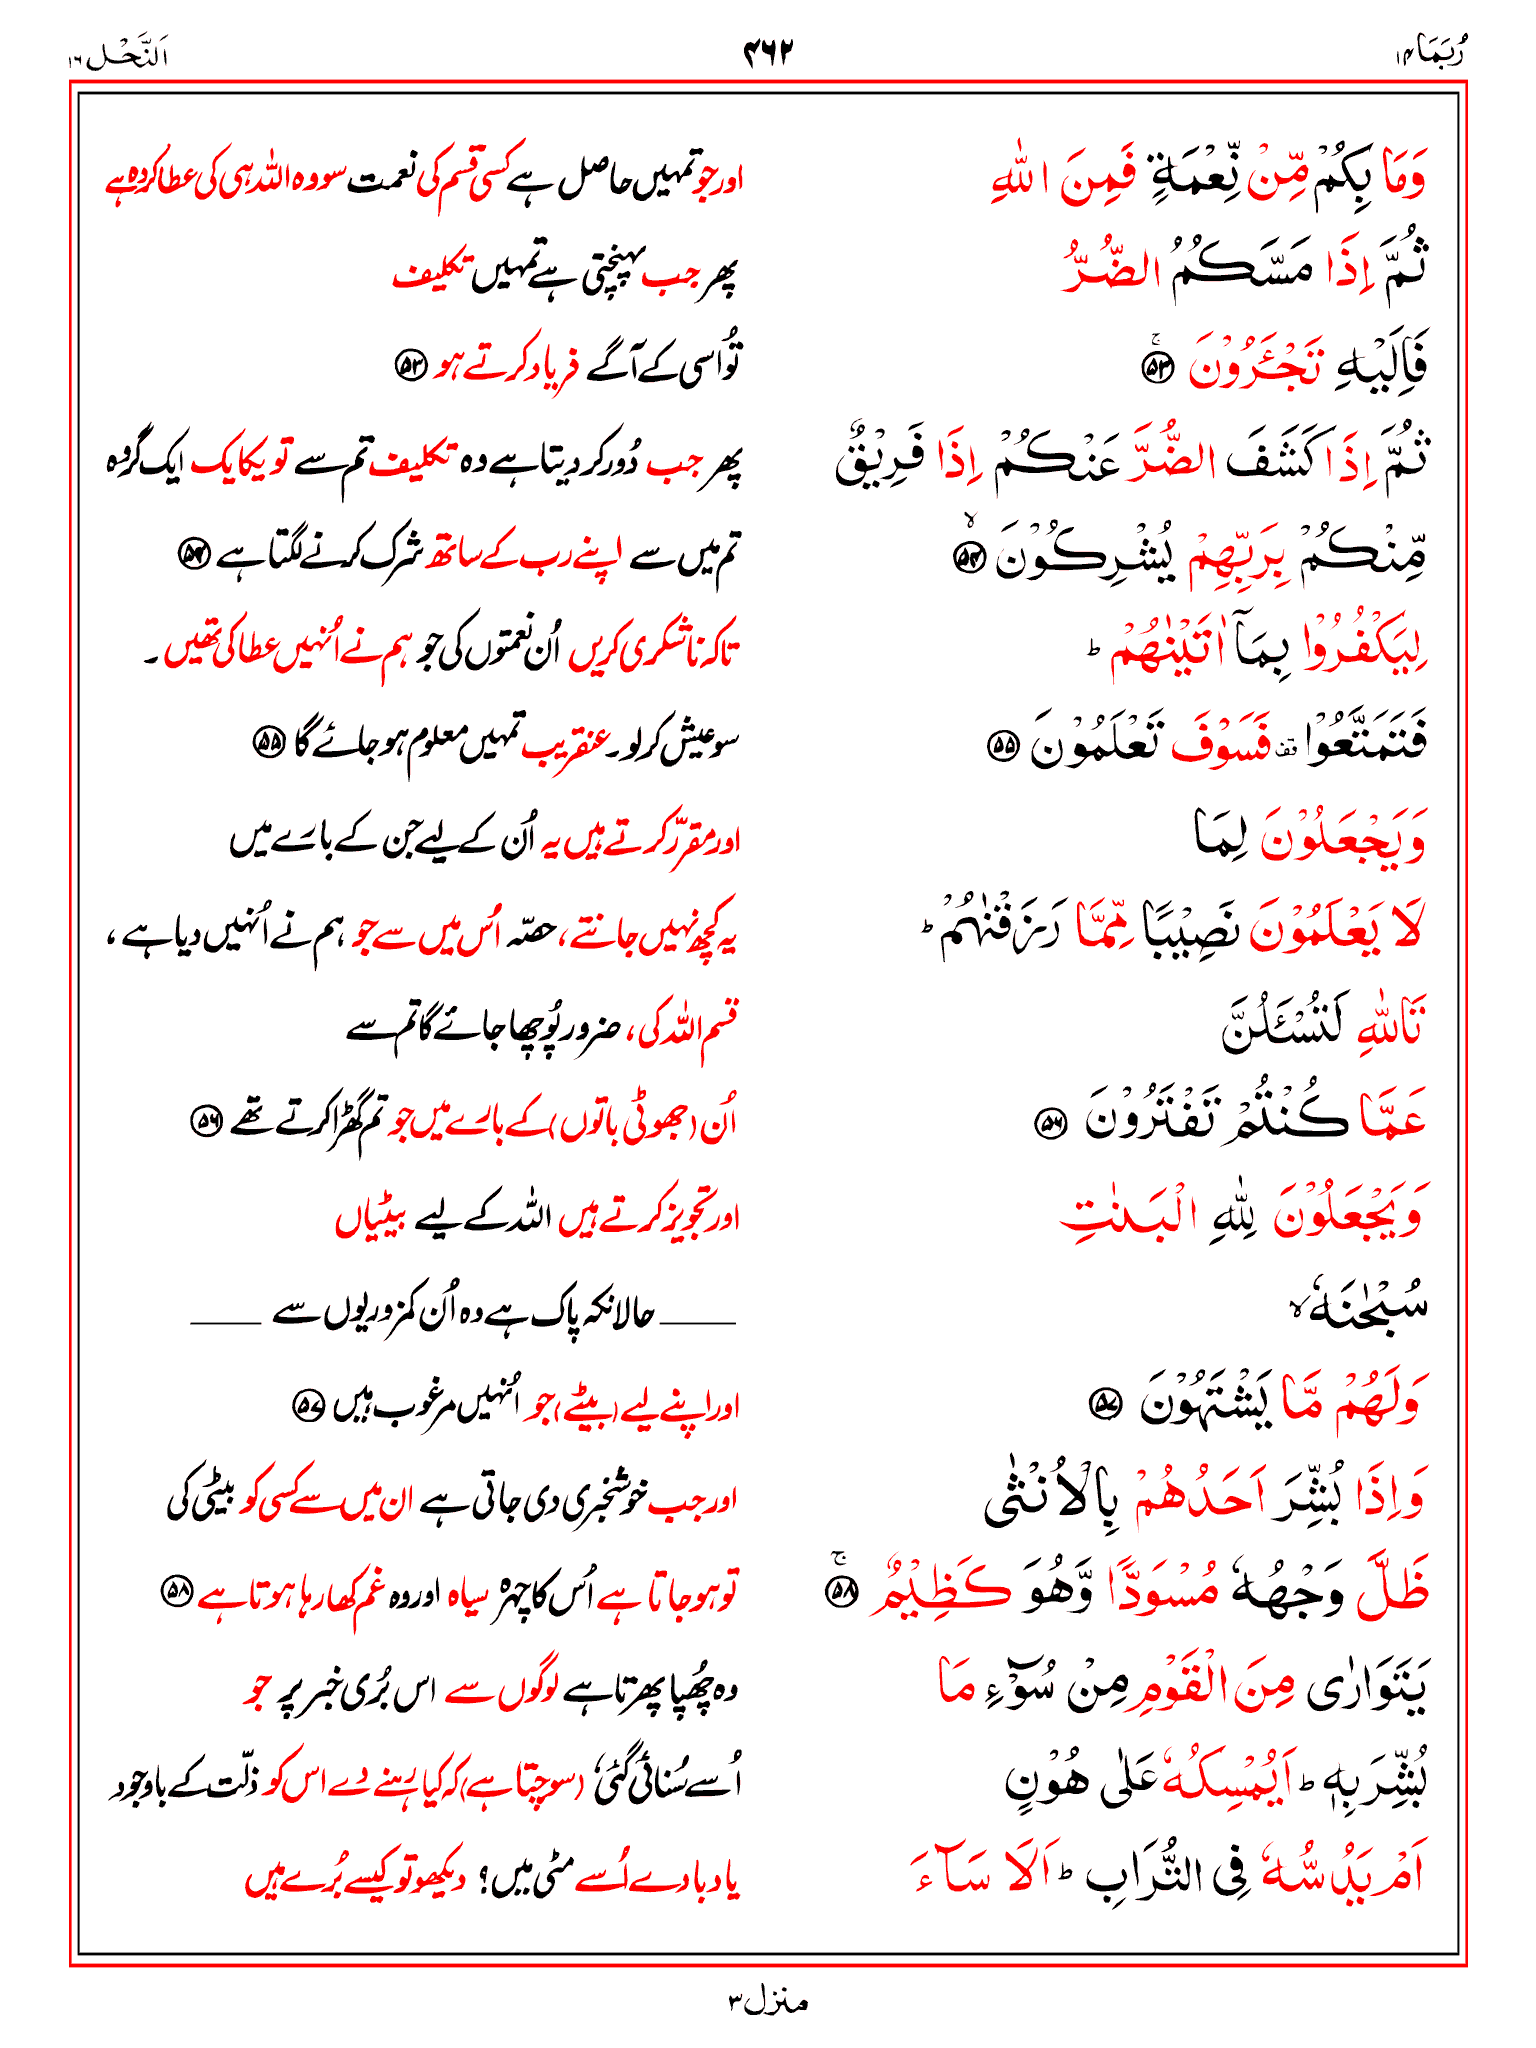 رُبَمَا ۱۴
۴۶۲
اَلنَّحْل ۱۶
وَمَا بِكُمْ مِّنْ نِّعْمَةٍ فَمِنَ اللّٰهِ
اور جو تمہیں حاصل ہے کسی قسم کی نعمت سو وہ اللہ ہی کی عطا کردہ ہے
ثُمَّ اِذَا مَسَّكُمُ الضُّرُّ
پھر جب پہنچتی ہے تمہیں تکلیف
فَاِلَيْهِ تَجْـَٔرُوْنَ ۚ ۵۳
تو اُسی کے آگے فریاد کرتے ہو ۵۳
ثُمَّ اِذَا كَشَفَ الضُّرَّ عَنْكُمْ اِذَا فَرِيْقٌ
پھر جب دُور کر دیتا ہے وہ تکلیف تم سے تو یکایک ایک گروہ
مِّنْكُمْ بِرَبِّهِمْ يُشْرِكُوْنَ ۙ ۵۴
تم میں سے اپنے رب کے ساتھ شرک کرنے لگتا ہے ۵۴
لِيَكْفُرُوْا بِمَآ اٰتَيْنٰهُمْ ؕ
تاکہ ناشکری کریں اُن نعمتوں کی جو ہم نے اُنہیں عطا کی تھیں ۔
فَتَمَتَّعُوْا قف فَسَوْفَ تَعْلَمُوْنَ ۵۵
سو عیش کرلو۔ عنقریب تمہیں معلوم ہو جائے گا ۵۵
وَيَجْعَلُوْنَ لِمَا
اور مقرّر کرتے ہیں یہ اُن کے لیے جن کے بارے میں
لَا يَعْلَمُوْنَ نَصِيْبًا مِّمَّا رَزَقْنٰهُمْ ؕ
یہ کچھ نہیں جانتے، حصّہ اُس میں سے جو ہم نے اُنہیں دیا ہے ،
تَاللّٰهِ لَتُسْـَٔلُنَّ
قسم اللہ کی، ضرور پُوچھا جائے گا تم سے
عَمَّا كُنْتُمْ تَفْتَرُوْنَ ۵۶
اُن (جھوٹی باتوں) کے بارے میں جو تم گھڑا کرتے تھے ۵۶
وَيَجْعَلُوْنَ لِلّٰهِ الْبَنٰتِ
اور تجویز کرتے ہیں اللہ کے لیے بیٹیاں
سُبْحٰنَهٗ ۙ
____ حالانکہ پاک ہے وہ اُن کمزوریوں سے ____
وَلَهُمْ مَّا يَشْتَهُوْنَ ۵۷
اور اپنے لیے (بیٹے) جو اُنہیں مرغوب ہیں ۵۷
وَاِذَا بُشِّرَ اَحَدُهُمْ بِالْاُنْثٰى
اور جب خوشخبری دی جاتی ہے ان میں سے کسی کو بیٹی کی
ظَلَّ وَجْهُهٗ مُسْوَدًّا وَّهُوَ كَظِيْمٌ ۚ ۵۸
تو ہو جاتا ہے اُس کا چہرہ سیاہ اور وہ غم کھا رہا ہوتا ہے ۵۸
يَتَوَارٰى مِنَ الْقَوْمِ مِنْ سُوْٓءِ مَا
وہ چُھپا پھرتا ہے لوگوں سے اس بُری خبر پر جو
بُشِّرَ بِهٖ ؕ اَيُمْسِكُهٗ عَلٰى هُوْنٍ
اُسے سُنائی گئی، (سوچتا ہے) کہ کیا رہنے دے اس کو ذلّت کے باوجود
اَمْ يَدُسُّهٗ فِى التُّرَابِ ؕ اَلَا سَآءَ
یا دبا دے اُسے مٹی میں؟ دیکھو تو کیسے بُرے ہیں
منزل ۳